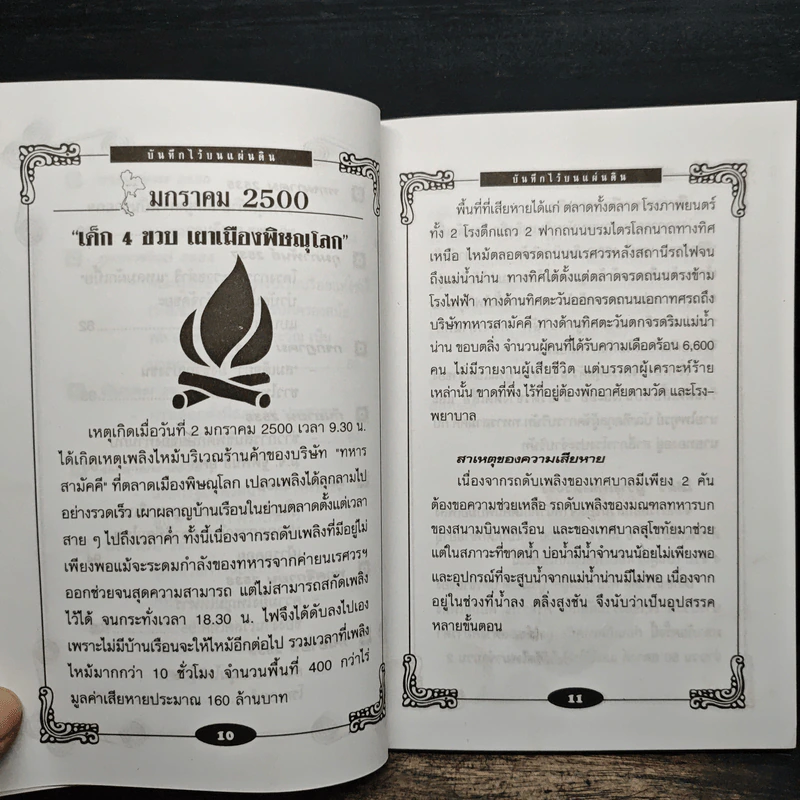 บันทึกไว้บนแผ่นดิน
มกราคม 2500
"เด็ก 4 ขวบ เผาเมืองพิษณุโลก"
เหตุเกิดเมื่อวันที่ 2 มกราคม 2500 เวลา 9.30 น.
ได้เกิดเหตุเพลิงไหม้บริเวณร้านค้าของบริษัท "ทหาร
สามัคคี" ที่ตลาดเมืองพิษณุโลก เปลวเพลิงได้ลุกลามไป
อย่างรวดเร็ว เผาผลาญบ้านเรือนในย่านตลาดตั้งแต่เวลา
สาย ๆ ไปถึงเวลาค่ำ ทั้งนี้เนื่องจากรถดับเพลิงที่มีอยู่ไม่
เพียงพอแม้จะระดมกำลังของทหารจากค่ายนเรศวรฯ
ออกช่วยจนสุดความสามารถ แต่ไม่สามารถสกัดเพลิง
ไว้ได้ จนกระทั่งเวลา 18.30 น. ไฟจึงได้ดับลงไปเอง
เพราะไม่มีบ้านเรือนจะให้ไหม้อีกต่อไป รวมเวลาที่เพลิง
ไหม้มากกว่า 10 ชั่วโมง จำนวนพื้นที่ 400 กว่าไร่
มูลค่าเสียหายประมาณ 160 ล้านบาท
10
บันทึกไว้บนแผ่นดิน
พื้นที่ที่เสียหายได้แก่ ตลาดทั้งตลาด โรงภาพยนตร์
ทั้ง 2 โรงตึกแถว 2 ฟากถนนบรมไตรโลกนาถทางทิศ
เหนือ ไหม้ตลอดจรดถนนนเรศวรหลังสถานีรถไฟจน
ถึงแม่น้ำน่าน ทางทิศใต้ตั้งแต่ตลาดจรดถนนตรงข้าม
โรงไฟฟ้า ทางด้านทิศตะวันออกจรดถนนเอกาทศรถถึง
บริษัททหารสามัคคี ทางด้านทิศตะวันตกจรดริมแม่น้ำ
น่าน ขอบตลิ่ง จำนวนผู้คนที่ได้รับความเดือดร้อน 6,600
คน ไม่มีรายงานผู้เสียชีวิต แต่บรรดาผู้เคราะห์ร้าย
เหล่านั้น ขาดที่พึ่ง ไร้ที่อยู่ต้องพักอาศัยตามวัด และโรง-
พยาบาล
สาเหตุของความเสียหาย
เนื่องจากรถดับเพลิงของเทศบาลมีเพียง 2 คัน
ต้องขอความช่วยเหลือ รถดับเพลิงของมณฑลทหารบก
ของสนามบินพลเรือน และของเทศบาลสุโขทัยมาช่วย
แต่ในสภาวะที่ขาดน้ำ บ่อน้ำมีน้ำจำนวนน้อยไม่เพียงพอ
และอุปกรณ์ที่จะสูบน้ำจากแม่น้ำน่านมีไม่พอ เนื่องจาก
อยู่ในช่วงที่น้ำลง ตลิ่งสูงชัน จึงนับว่าเป็นอุปสรรค
หลายขั้นตอน
11